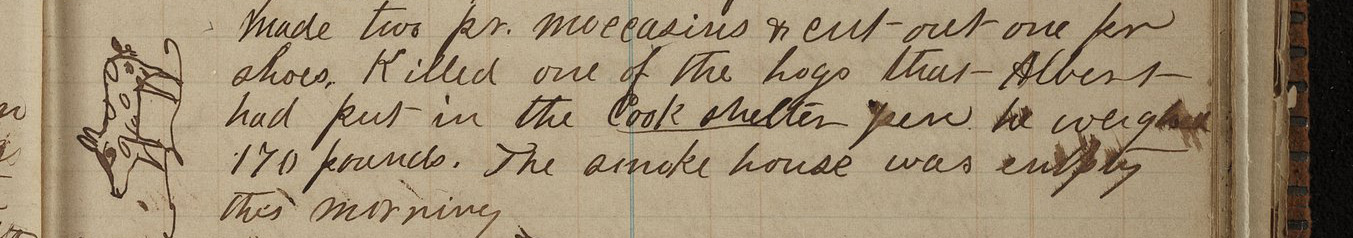 Made two pr. moccasins & cut out one pr
shoes. Killed one of the hogs that Albert
had put in the Cook shelter pen. he weighed
170 pounds. The smoke house was empty
this morning